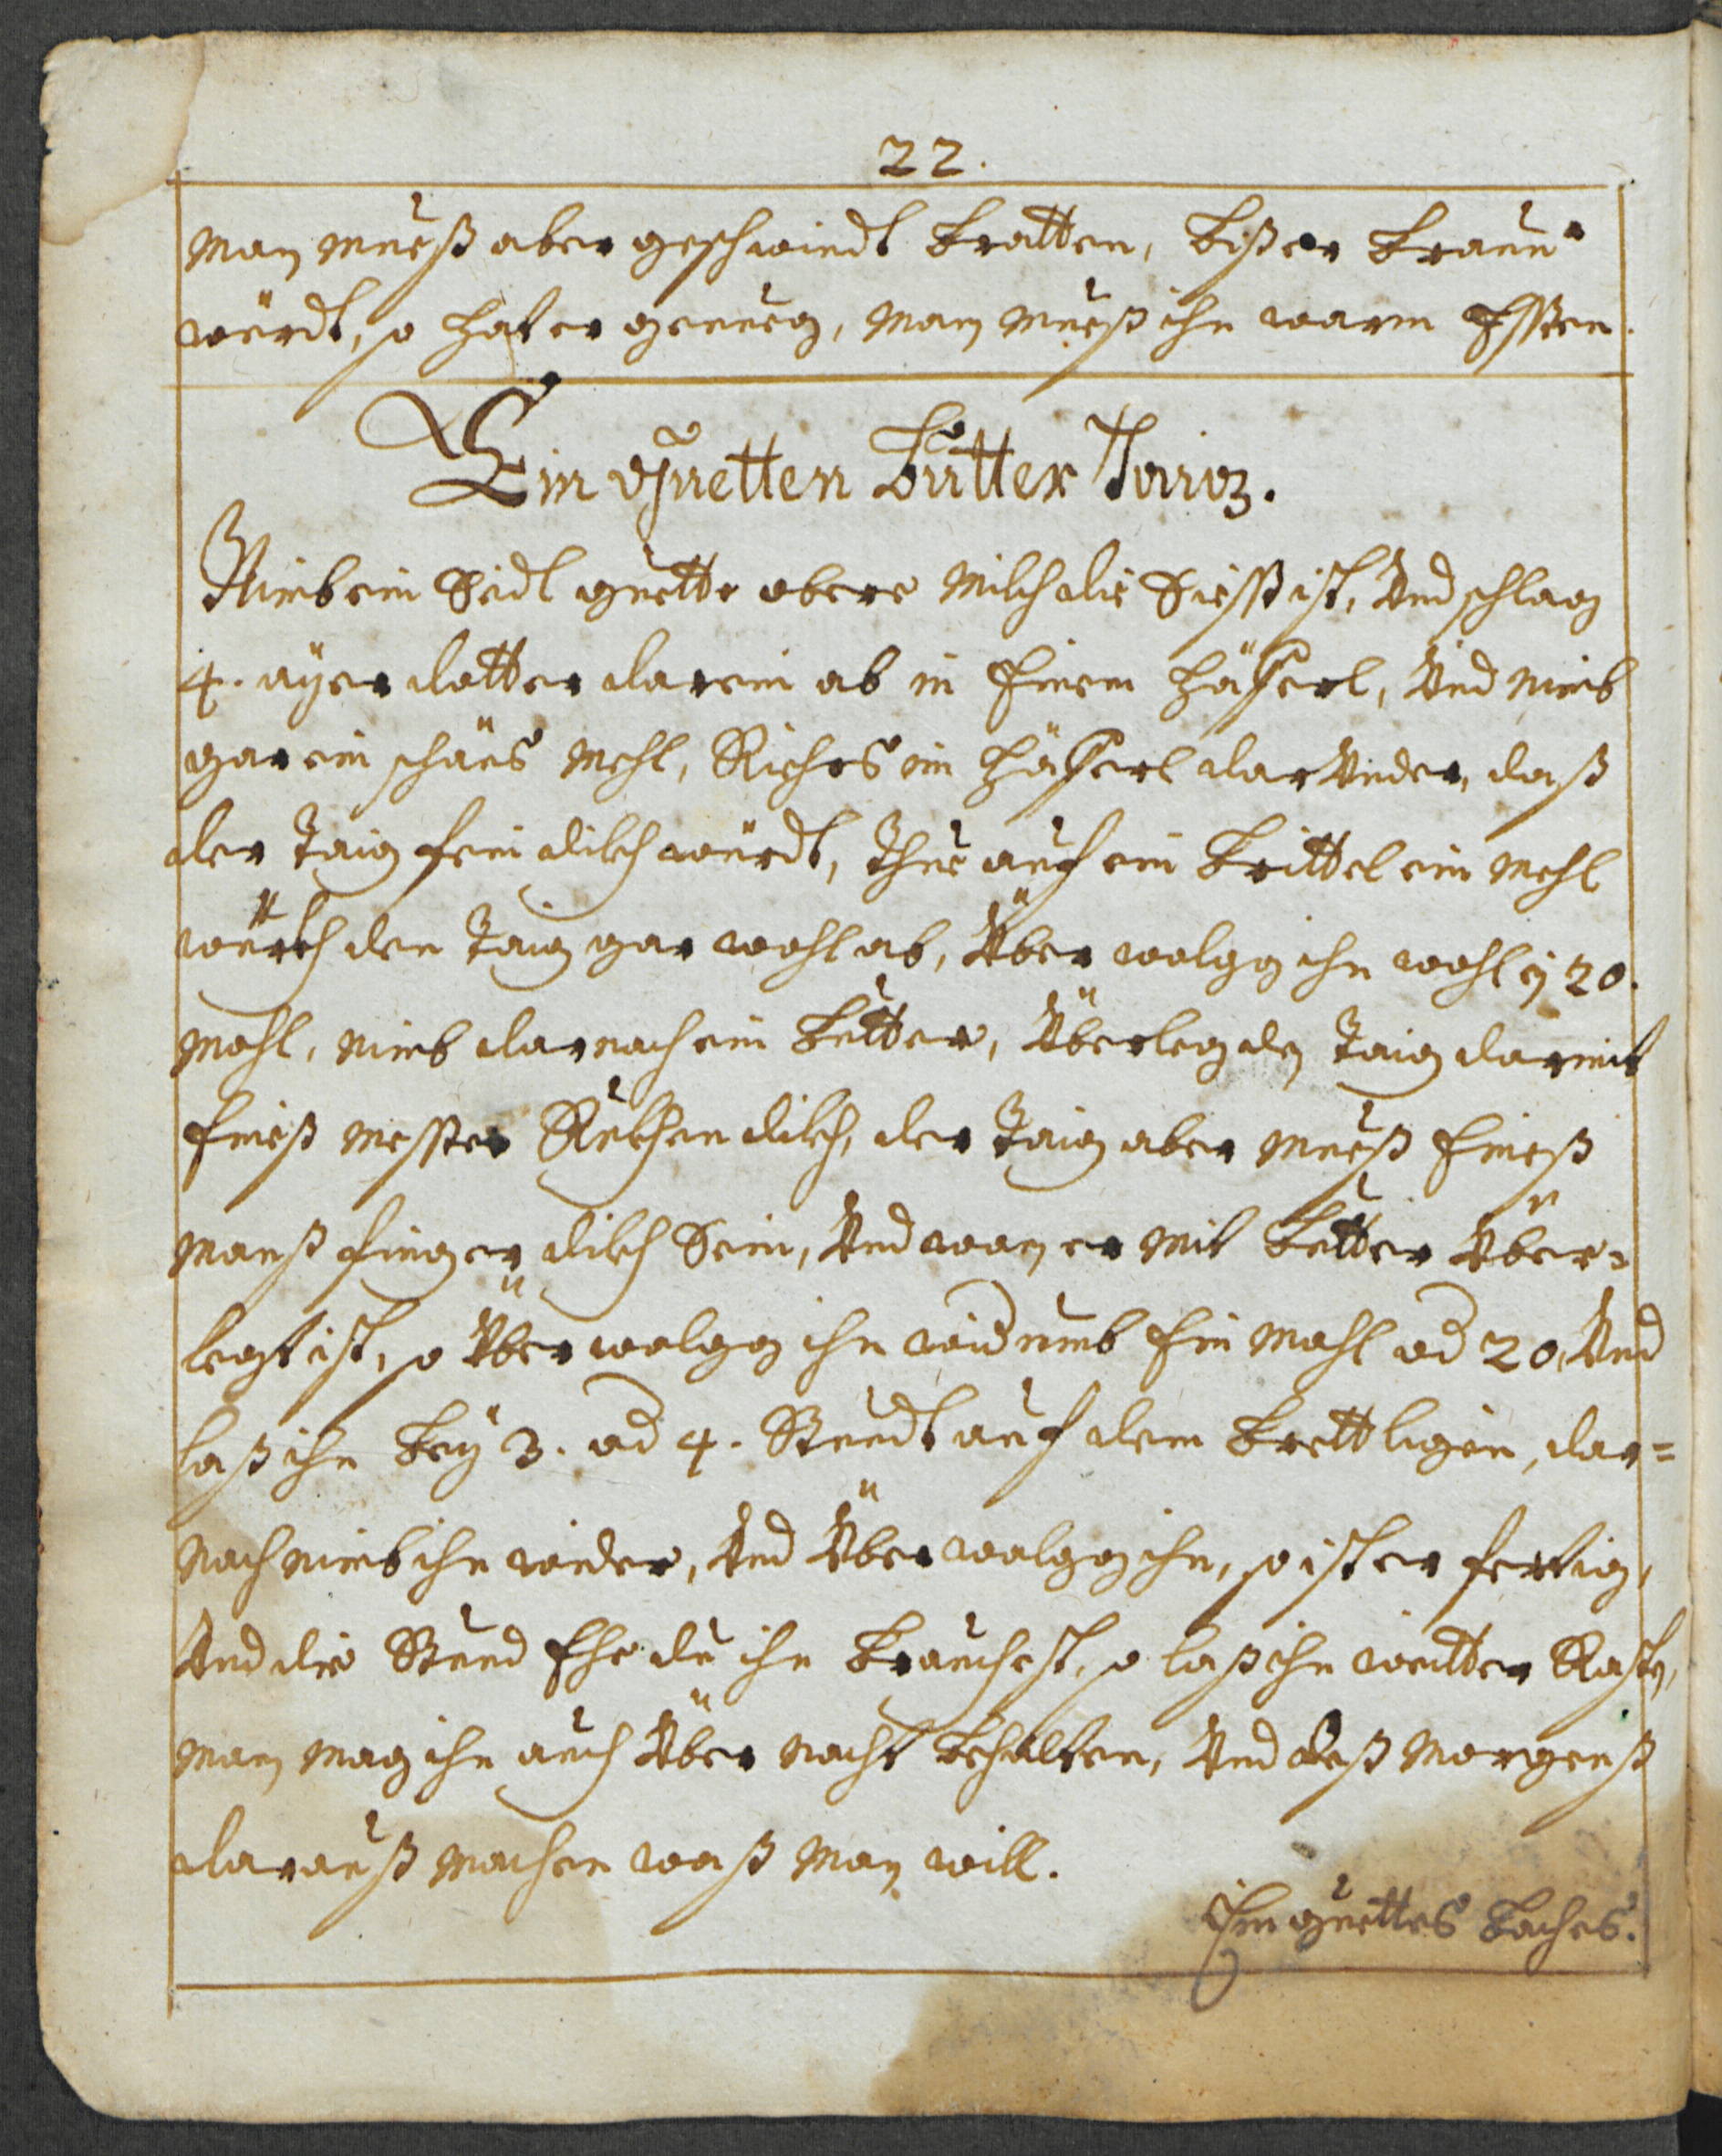 22.
man mueß aber geschwindt bratten, biß er braun
würdt, so hat er genueg, man mueß ihn warm Essen.
Ein Guetten Butter Taig.
Nimb ein Seidl guette obere Milch die Siess ist, Und schlag
4. ayer dotter darein ab in Einem häferl, Und nimb
gar ein schäns Mehl, Riehrs im häferl dar Under, daß
der Taig fein dikh würdt, thue auf ein Brittel ein Mehl
würkh den Taig gar wohl ab, Über walgg ihn wohl ÿ 20.
Mahl, nimb darnach ein Butter, Überleg den Taig darmit
Eineß Messer Rukhen dikh, der Taig aber mueß Eineß
Manß finger dikh Sein, Und wan er mit Butter Über=
legt ist, so Über walgg ihn widrumb Ein Mahl od 20, Und
laß ihn beÿ 3. od 4. Stundt auf dem Brett ligen, dar=
nach nimb ihn wider, Und Über walgg ihn, so ist er fertig,
Und die Stund Ehe du ihn brauchest, so laß ihn wider Rasten,
man mag ihn auch Über Nacht behalten, Und deß Morgenß
darauß Machen waß Man will.
Ein guettes baches.